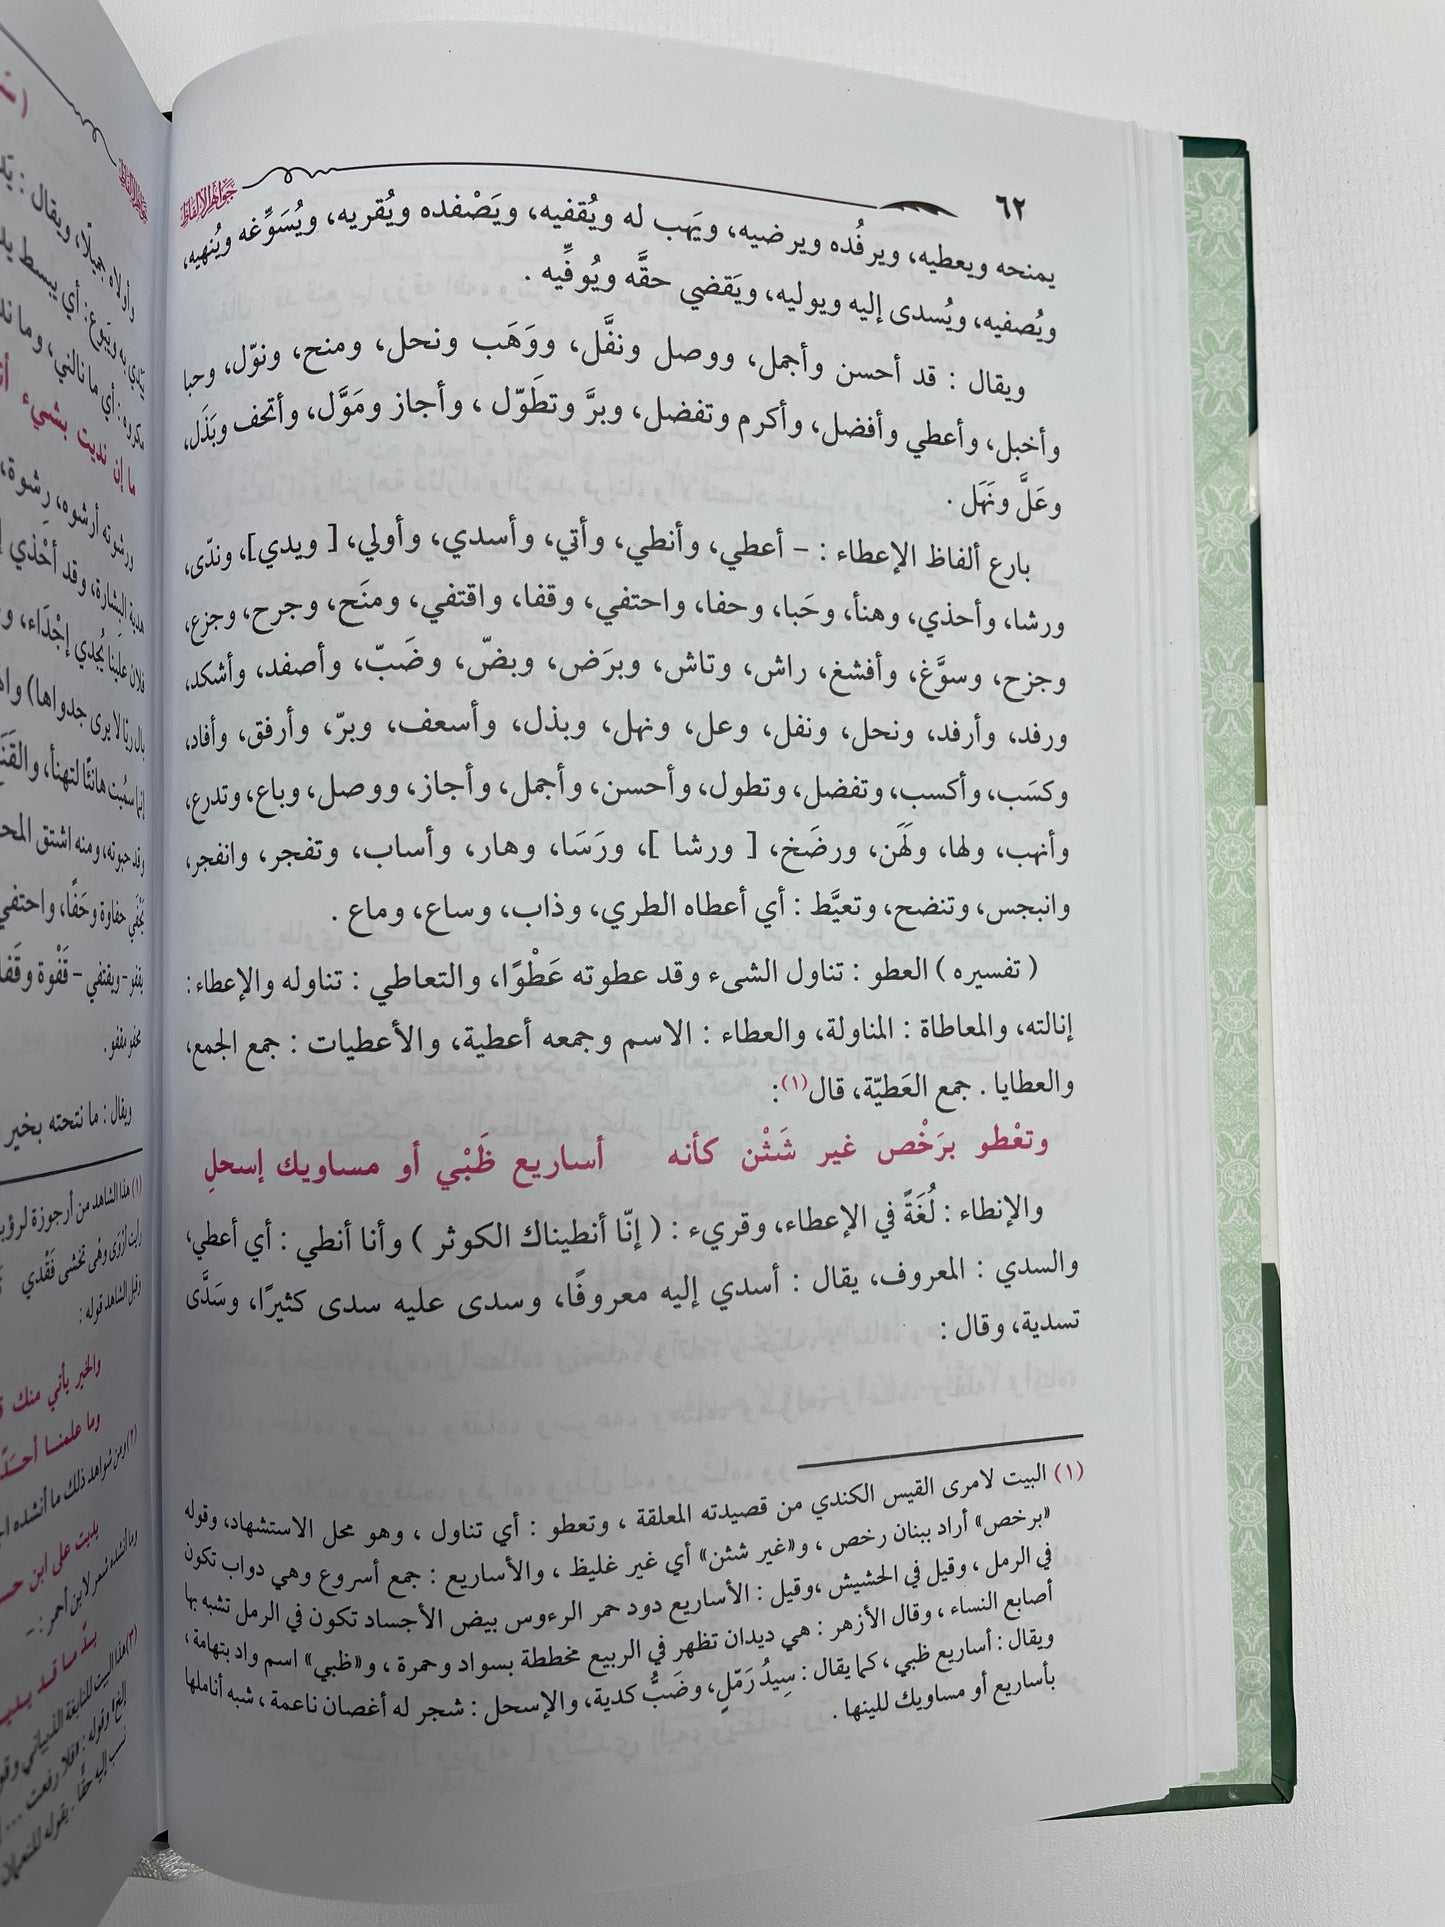 ٦٢
جواهر الألفاظ
يمنحه ويعطيه، ويرفُده ويرضيه، ويَهب له ويُقفيه، ويَصْفده ويُقريه، ويُسَوِّغه ويُنهيه،
ويُصفيه، ويُسدى إليه ويوليه، ويَقضي حقَّه ويُوفِّيه .
ويقال : قد أحسن وأجمل، ووصل ونفَّل، ووَهَب ونحل، ومنح، ونوّل، وحبا
وأخبل، وأعطي وأفضل، وأكرم وتفضل، وبرَّ وتطَوّل ، وأجاز ومَوَّل، وأتحف وبَذَل،
وعَلَّ ونَهَل .
بارع ألفاظ الإعطاء : – أعطي، وأنطي، وأتي، وأسدي، وأولي، [ ويدي]، وندّى،
ورشا، وأحذي، وهنأ، وحَبا، وحفا، واحتفي، وقفا، واقتفي، ومنَح، وجرح، وجزع،
وجزح، وسوَّغ، وأفشغ، راش، وتاش، وبرَض، وبضّ، وضَبّ، وأصفد، وأشكد،
ورفد، وأرفد، ونحل، ونفل، وعل، ونهل، وبذل، وأسعف، وبرّ، وأرفق، وأفاد،
وكسَب، وأكسب، وتفضل، وتطول، وأحسن، وأجمل، وأجاز، ووصل، وباع، وتدرع،
وأنهب، ولها، ولَهَن، ورضَخ، [ ورشا ]، ورَسَا، وهار، وأساب، وتفجر، وانفجر،
وانبجس، وتنضح، وتعيَّط : أي أعطاه الطري، وذاب، وساع، وماع .
( تفسيره ) العطو : تناول الشىء وقد عطوته عَطْوًا، والتعاطي : تناوله والإعطاء:
إنالته، والمعاطاة : المناولة، والعطاء : الاسم وجمعه أعطية، والأعطيات : جمع الجمع،
والعطايا . جمع العَطيّة، قال(١):
وتعْطو برَخْص غير شَثْن كأنه أساريع ظَبْي أو مساويك إسحلِ
والإنطاء : لُغَةً في الإعطاء، وقريء : ( إنّا أنطيناك الكوثر ) وأنا أنطي : أي أعطي،
والسدي : المعروف، يقال : أسدي إليه معروفًا، وسدى عليه سدى كثيرًا، وسَدَّى
تسدية، وقال :
(١) البيت لامرى القيس الكندي من قصيدته المعلقة ، وتعطو : أي تناول ، وهو محل الاستشهاد، وقوله
«برخص» أراد ببنان رخص ، و«غير شثن» أي غير غليظ ، والأساريع : جمع أسروع وهي دواب تكون
في الرمل ، وقيل في الحشيش ،وقيل : الأساريع دود حمر الرءوس بيض الأجساد تكون في الرمل تشبه بها
أصابع النساء ، وقال الأزهر : هي ديدان تظهر في الربيع مخططة بسواد وحمرة ، و«ظبي» اسم واد بتهامة ،
ويقال : أساريع ظبي ، كما يقال : سِيدُ رَمّلٍ، وضَبُّ كدية، والإسحل : شجر له أغصان ناعمة ، شبه أناملها
بأساريع أو مساويك للينها .
وأولاه جميلًا، ويقال :
مكروه : أي ما نالني، وما
ما إن نديت بشيء
ورشوته أرشوه، رِشوة،
هدية البشارة، وقد أحْذي
فلان علينا يُجدي إجْدَاء،
إنما سميت هانئًا لتهنأ،
وقد حبوته، ومنه اشتق
يَحْفَي حفاوة وحَفًا، واحتفي
يقفو – ويقتفي – قَفْوة
ويقال : ما نتحته بخير
(١) هذا الشاهد من أرجوزة لرؤبة
وقبل الشاهد قوله :
والخير يأتي منك
وما علمنا
(٢) ومن شواهد ذلك ما أنشده
يديت على ابن
(٣) هذا البيت للنابغة الذبياني